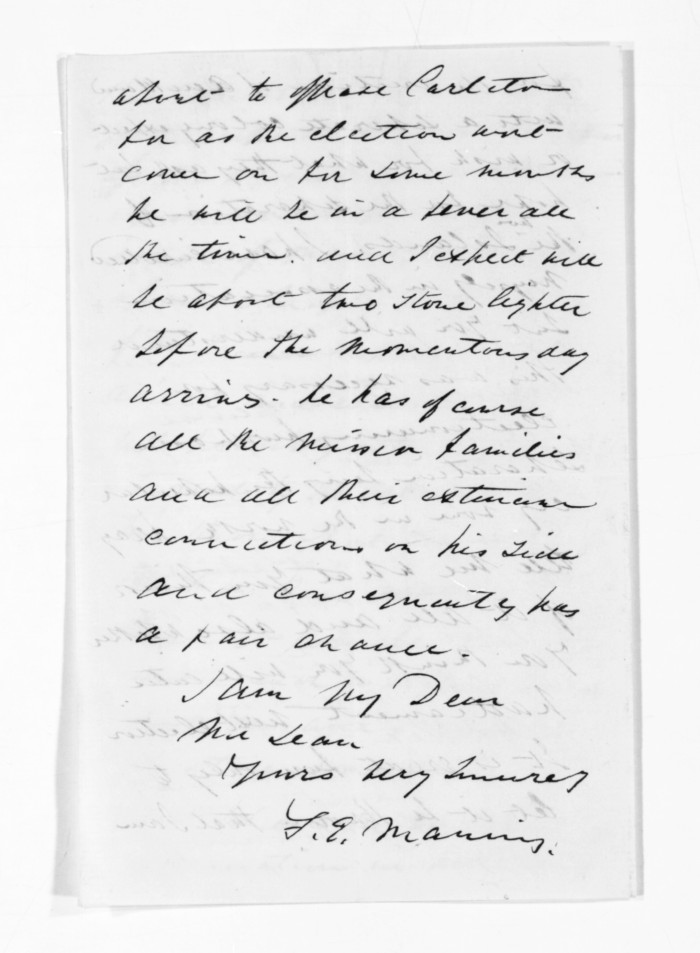 about to oppose Carleton
for as the election wont
come on for some months
he will be in a fever all
the time. and I expect will
be about two stone lighter
before the momentous day
arrives. he has of course
all the mission families
and all their extensive
connections on his side
and consequently has
a fair chance.
I am My Dear
McLean
Yours very sincerely
F.E. Maning.